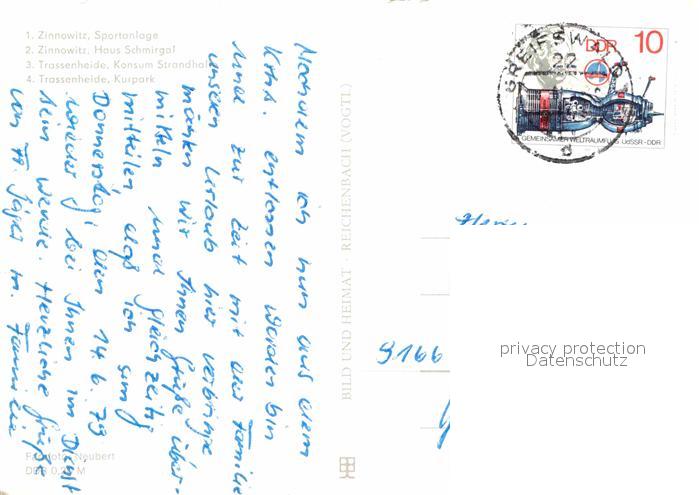 1. Zinnowitz, Sportanlage
2. Zinnowitz, Haus Schmirgal
3. Trassenheide, Konsum Strandhal
4. Trassenheide, Kurpark
Nachdem ich nun aus dem
Krhs. entlassen worden bin
und zur Zeit mit der Familie
unseren Urlaub hier verbringe
möchten wir Ihnen Grüße über-
mitteln und gleichzeitig
mitteilen, daß ich am
Donnerstag, den 14.6.79
wieder bei Ihnen im Dienst
sein werde. Herzliche Grüße
von Fr. Jäger m. Familie
Neubert
DDR 0,20 M
BILD UND HEIMAT · REICHENBACH (VOGTL)
GREIFSWALD
22
d
DDR 10
GEMEINSAMER WELTRAUMFLUG UdSSR-DDR
Herrn
9166
privacy protection
Datenschutz